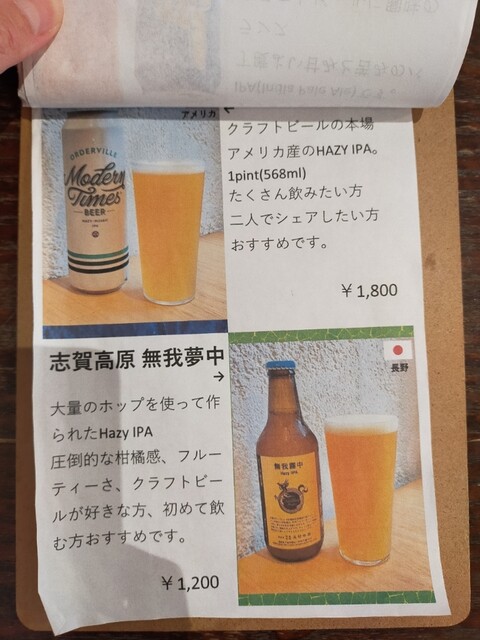 アメリカ
ORDERVILLE
Modern
Times
BEER
クラフトビールの本場
アメリカ産のHAZY IPA。
1pint(568ml)
たくさん飲みたい方
二人でシェアしたい方
おすすめです。
￥1,800
志賀高原 無我夢中
→
大量のホップを使って作
られたHazy IPA
圧倒的な柑橘感、フルー
ティーさ、クラフトビー
ルが好きな方、初めて飲
む方おすすめです。
￥1,200
長野
無我夢中
Hazy IPA